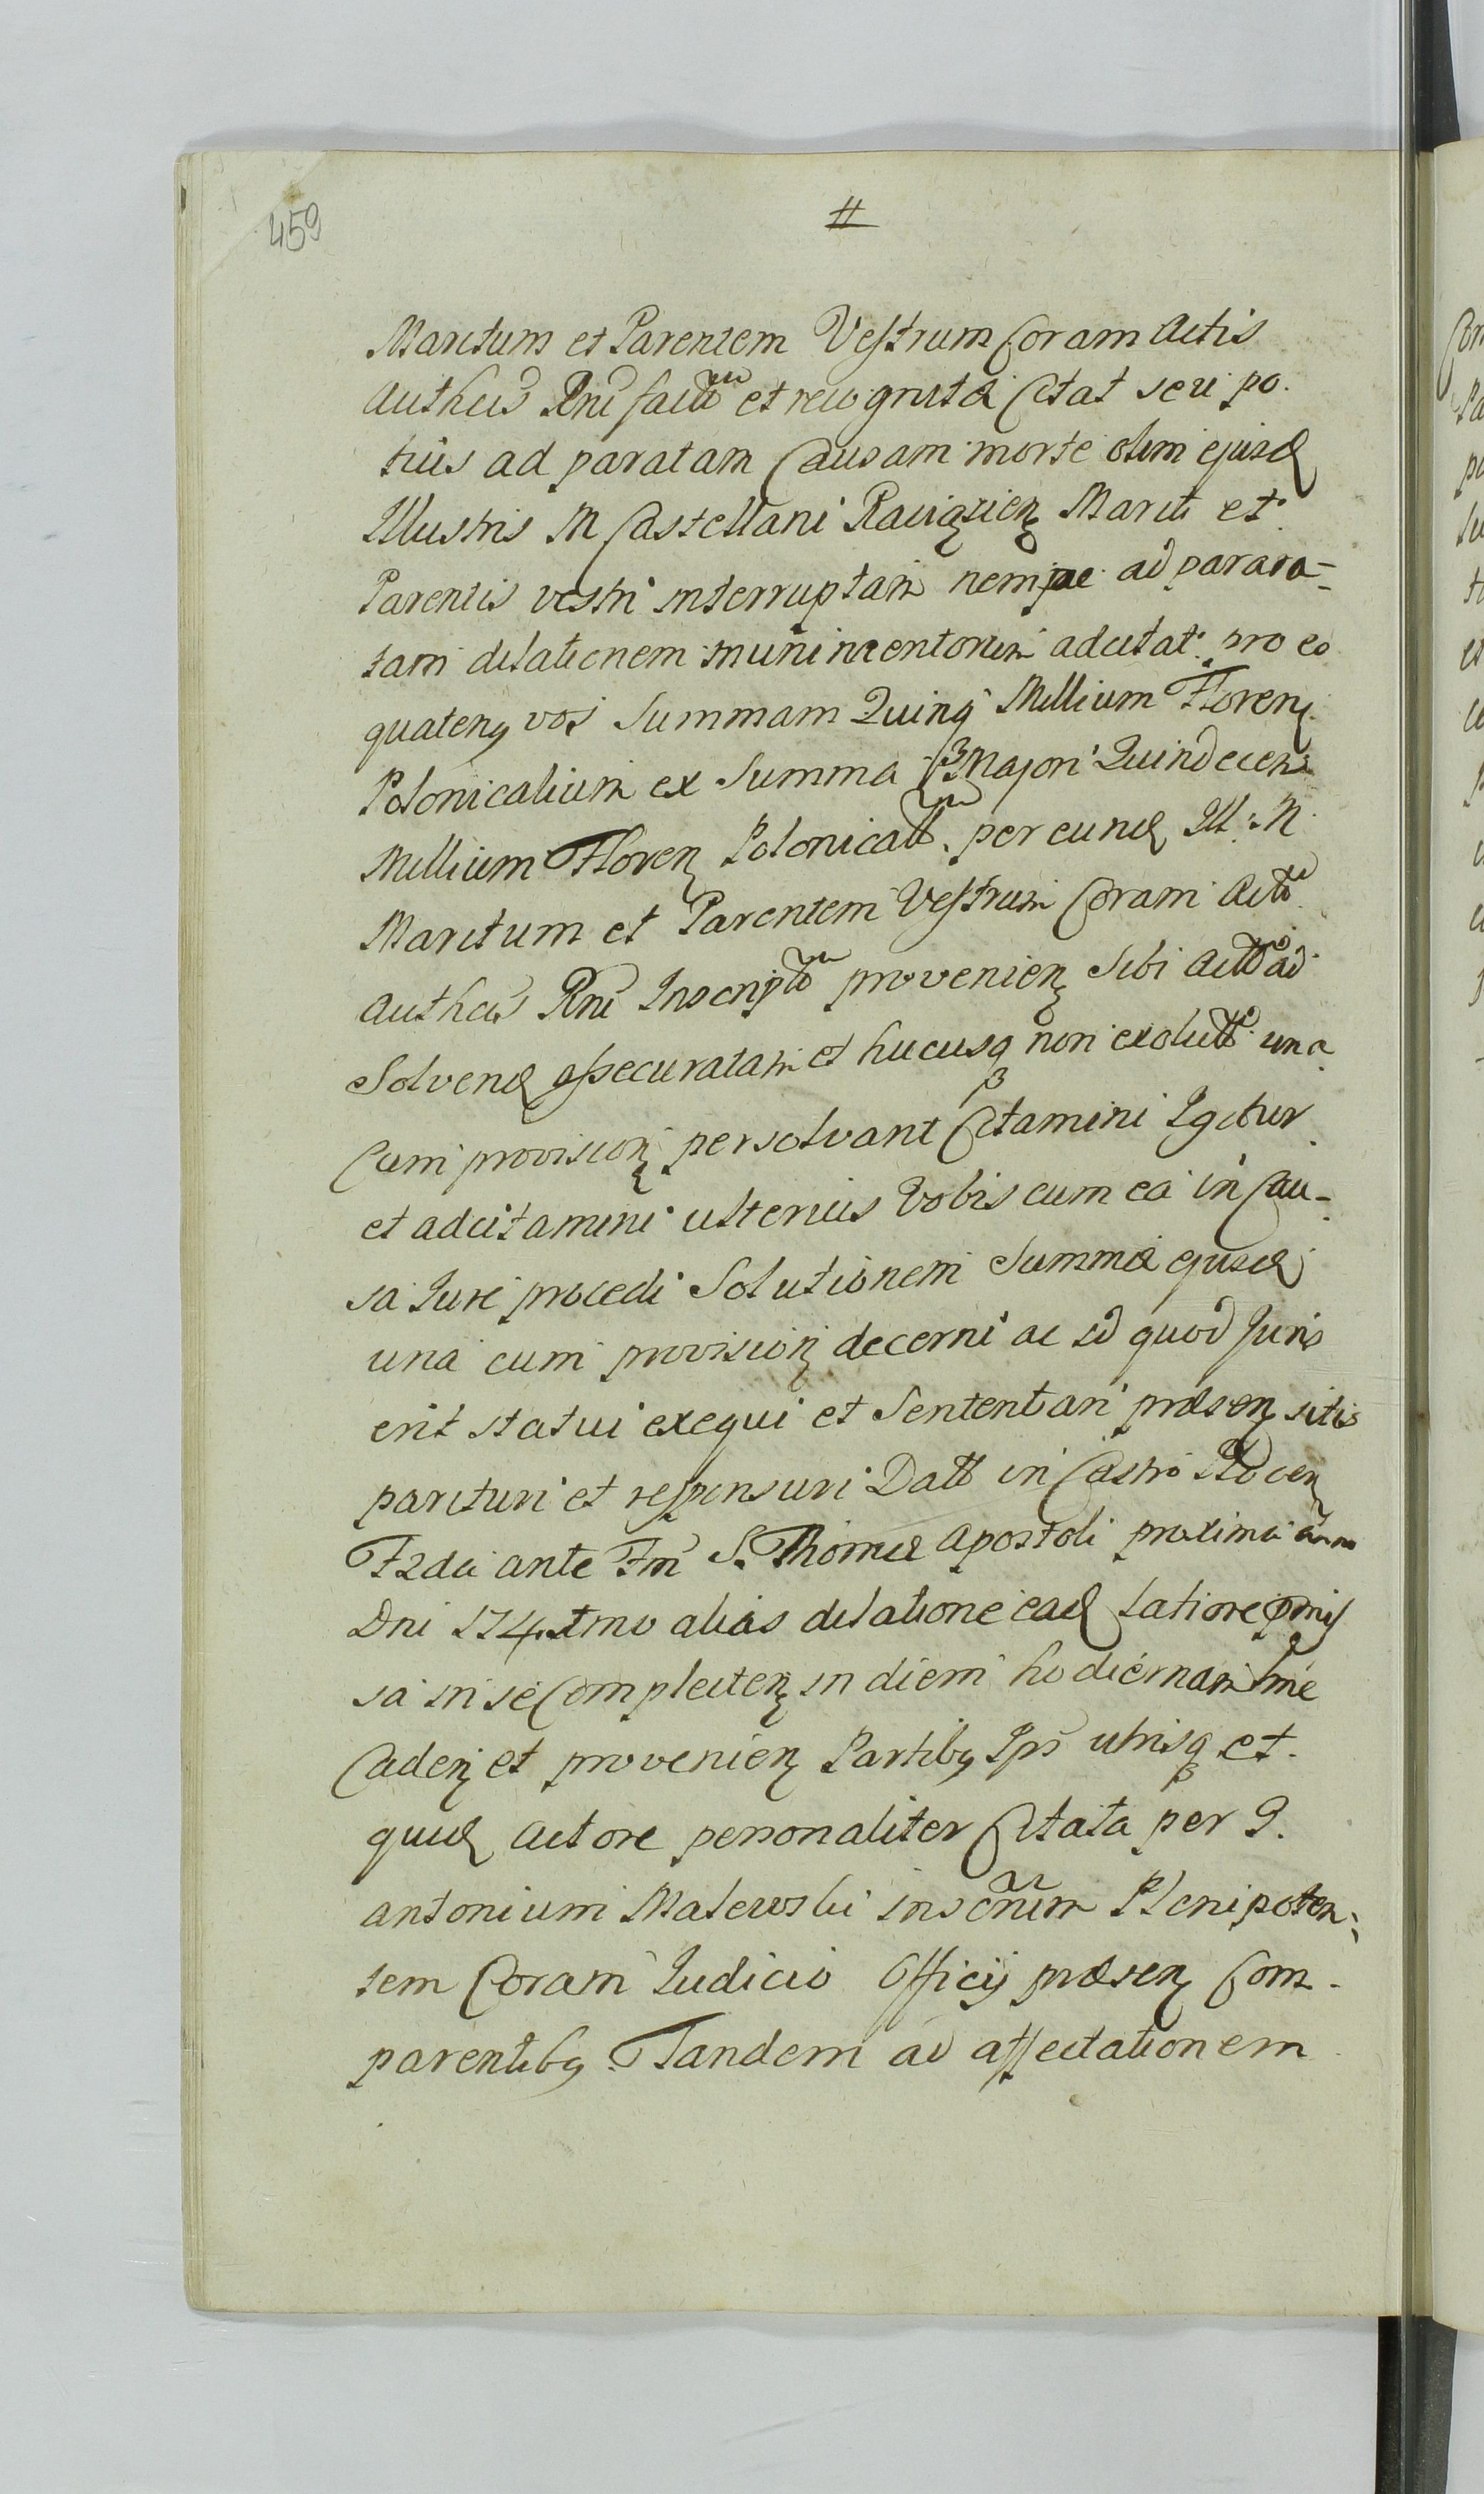 459
#
Maritum et Parentem Vestrum Coram Actis
Authcis Rni factu et recognita Citat seu po-
tius ad paratam Causam morte olim ejusd
Illustris M Castellani Raciązien Mariti et
Parentis vestri interruptam nempe ad parata-
tam dilationem munimentorum adcitat pro eo
quatenq vos Summam Quinq Millium Floren
Polonicalium ex Summa Majori Quindecem
Millium Floren Polonicall. per eund Ill: M
Maritum et Parentem Vestrum Coram Actu
Authcis Rni Inscriptu provenien Sibi Actori ad
Solvend assecuratam et hucusq non exolutt una
Cum provision persolvant Citamini Igitur
et adcitamini ulterius Vobis cum ea in Cau-
sa Jure procedi Solutionem Summæ ejusd
una cum provision decerni ac id quod Juris
erit statui exequi et Sententiari præsen sitis
parituri et responsuri Datt in Castro Plocen
Frda ante Fm S. Thomæ Apostoli proxima Anno
Dni 174 tmo alias dilatione ead latiore
sa in se Complecten in diem hodiernam
Caden et provenien Partibq Ips utrisq et
quid Actore personaliter Citata per G.
Antonium Malewski inscrium Plenipoten-
tem Coram Judicio Officij præsen Com-
parentibq Tandem ad affectationem